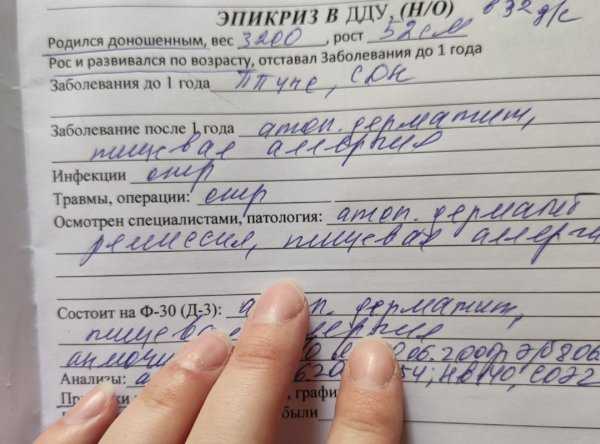 ЭПИКРИЗ В ДДУ, (Н/О) в 32 д/с
Родился доношенным, вес 3200, рост 52см
Рос и развивался по возрасту, отставал Заболевания до 1 года
Заболевания до 1 года ППЦНС, СДН
Заболевание после 1 года атоп. дерматит,
пищевая аллергия
Инфекции отр
Травмы, операции: отр
Осмотрен специалистами, патология: атоп. дерматит
ремиссия, пищевая аллерги
Состоит на Ф-30 (Д-3): ат п. дерматит,
пищева ллергия
Анализы:
, графи
были